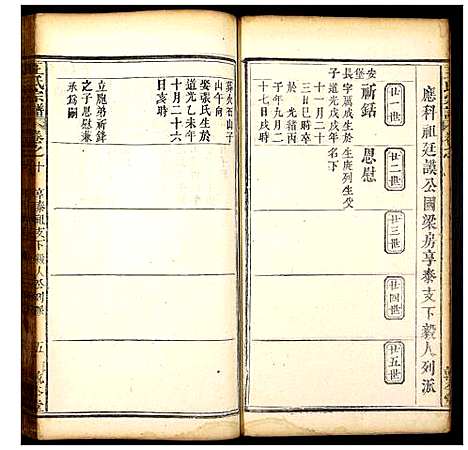 應科祖廷謨公國梁房享泰支下毅人列派
廿一世
廿二世
廿三世
廿四世
廿五世
祈銛
思慰
長字廣成生於
生庚列祈
道光戊戌年
名下
十一月二十
三日巳時卒
於光緒丙
子年九月二
十七戌時
山午向
娶張氏生於
道光乙未年
十月二十六
日亥時
立應弟祈鋅
之子思慰兼
承為嗣
氏宗譜
卷之十
享泰祖支下毅人公列派
五